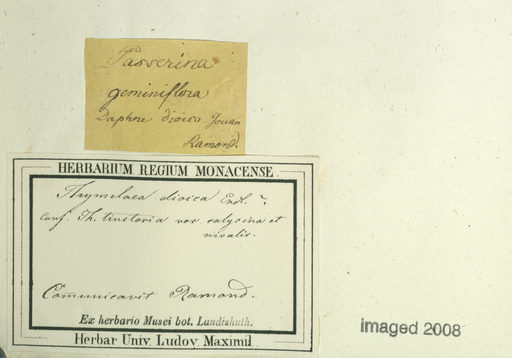 Passerina
geminiflora
Daphne dioica Gouan
Ramond.
HERBARIUM REGIUM MONACENSE.
Thymelaea dioica Endl. ?.
conf. Th. tinctoria var. calycina et
nivalis.
Comunicavit Ramond.
Ex herbario Musei bot. Landishuth.
Herbar Univ. Ludov. Maximil.
imaged 2008